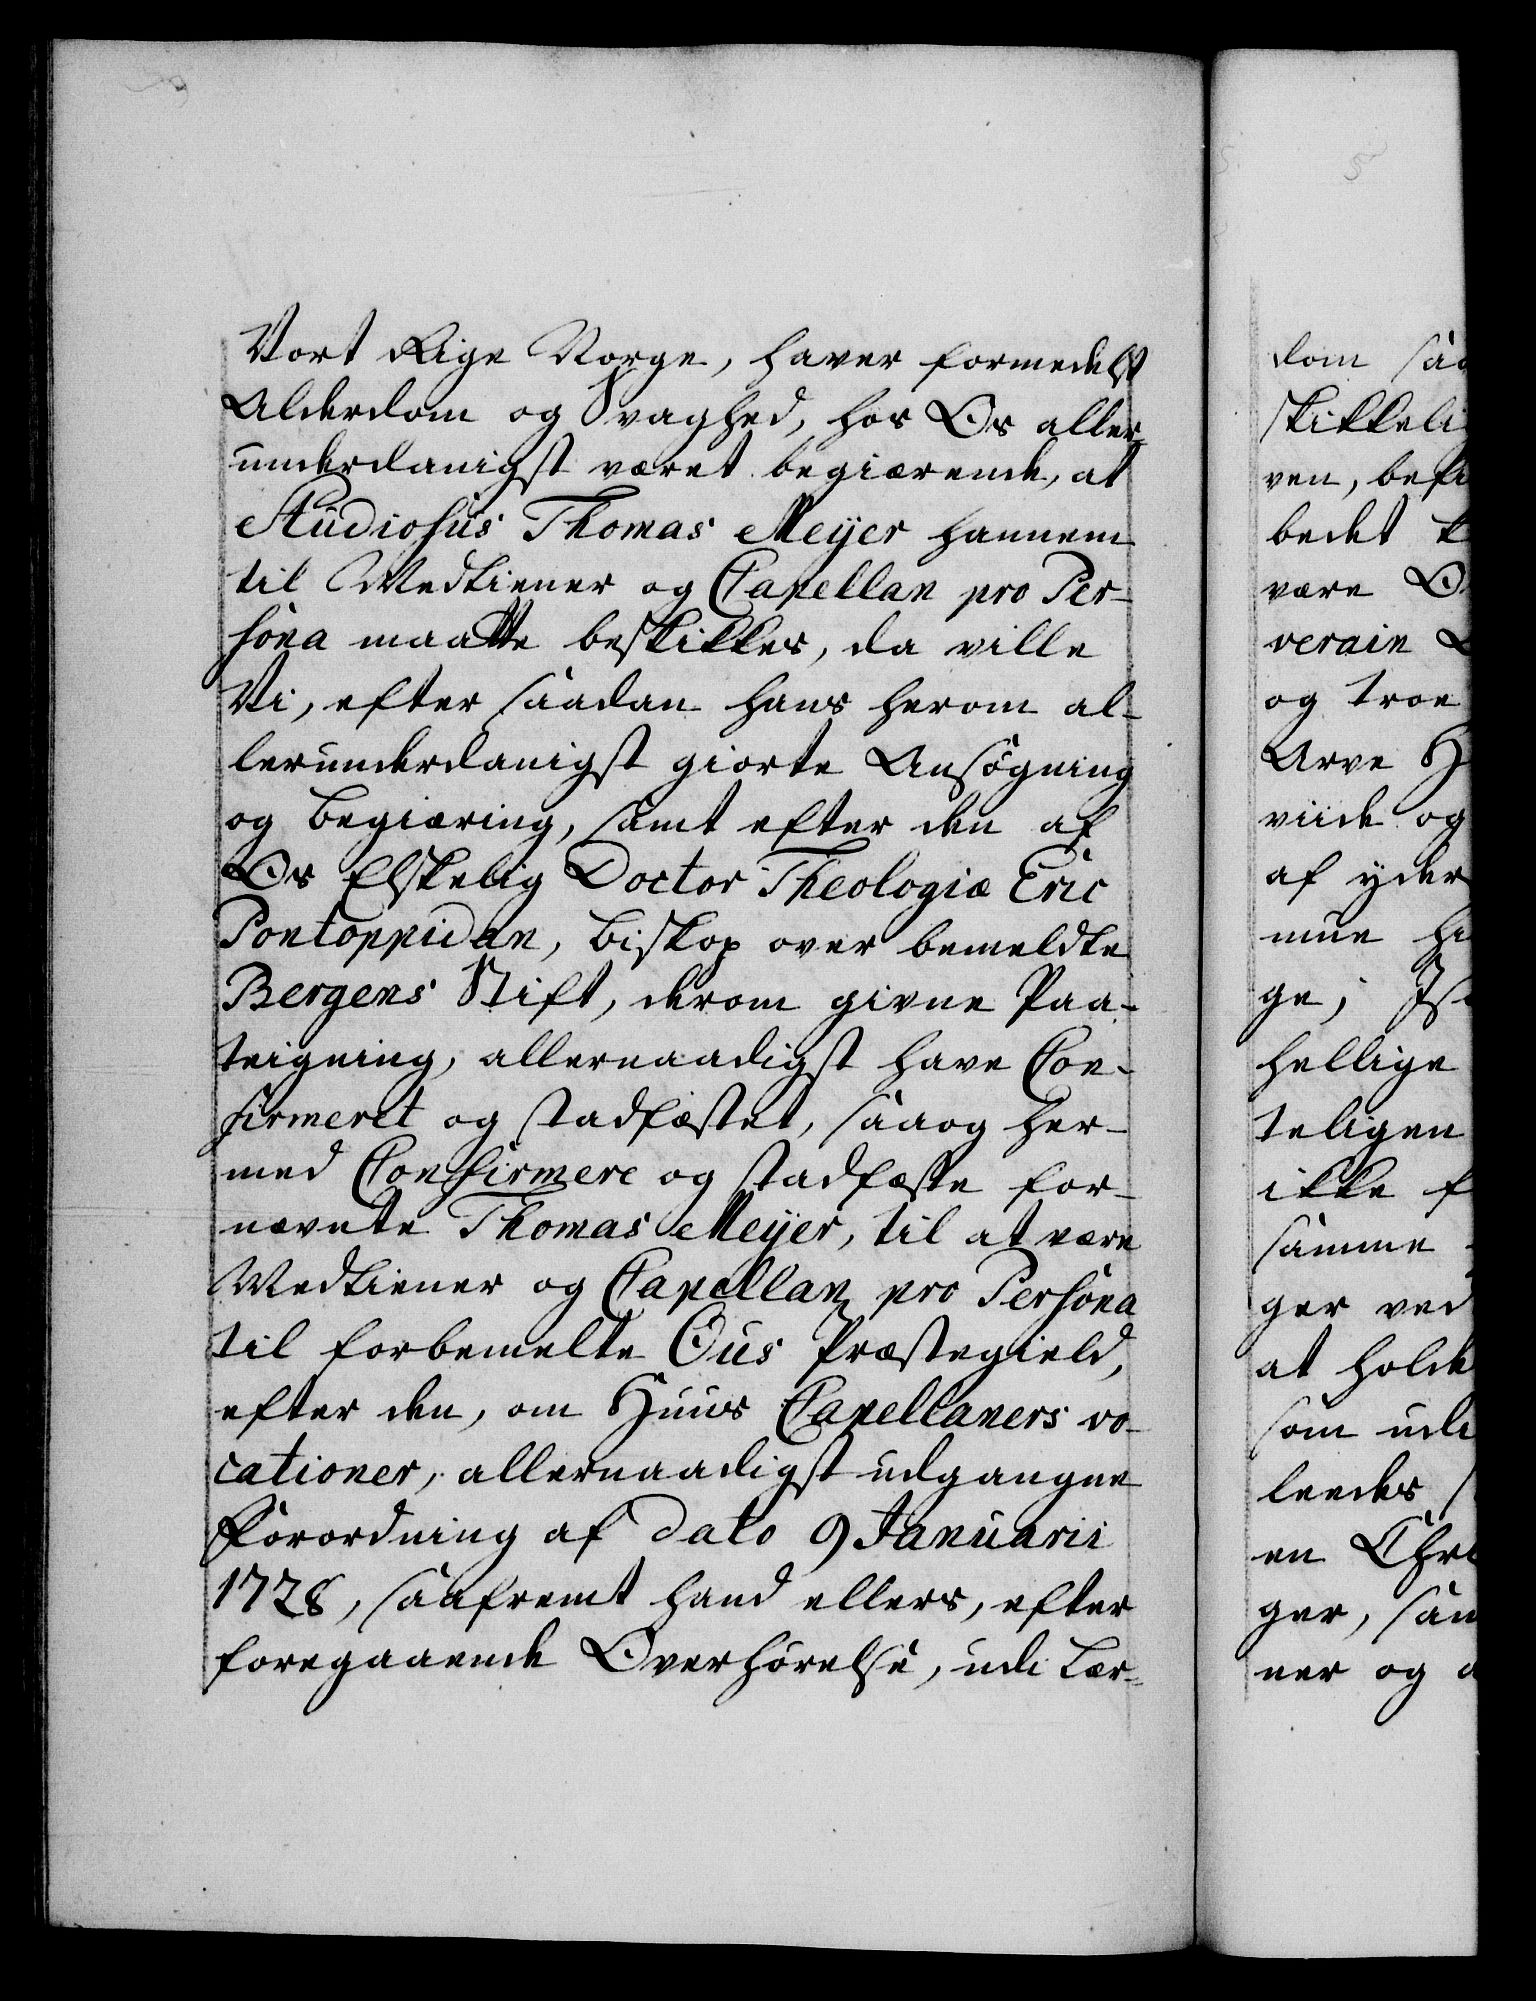 Vort Rige Norge, haver formedelst
Alderdom og Svaghed, hos Os aller-
underdanigst været begiærende, at
Studiosus Thomas Meÿer hannem
til Medtiener og Capellan pro Per-
sona maatte beskikkes, da ville
Vi, efter saadan hans herom al-
lerunderdanigst giorte Ansøgning
og begiæring, samt efter den af
Os Elskelig Doctor Theologiæ Eric
Pontoppidan, Biskop over bemeldte
Bergens Stift, derom givne Paa-
teigning, allernaadigst have Con-
firmeret og stadfæstet, saaog her-
med Confirmere og stadfæste for-
nævnte Thomas Meÿer, til at være
Medtiener og Capellan pro Persona
til forbemelte Ous Præstegield,
efter den, om Huus Capellaners vo-
cationer, allernaadigst udgangne
Forordning af dato 9 Januarii
1728, saafremt hand ellers, efter
foregaaende Overhørelse, udi Lær-
dom
skikkeli
ven, bef
bedet
være
verain
og troe
Arve
viide og
af yder
mue
ge;
hellige
teligen
ikke f
samme
ger ved
at holde
som udi
leedes
en Chr
ger, sam
ner og